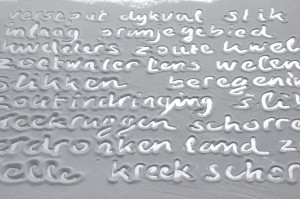 verseput dykval slik
inlaag oranjegebied
huwelders zoute kwel
zoetwaterlens welen
slikken beregenin
zoutindringing sli
kreekruggen schorre
erdronken land z
elle kreek schor